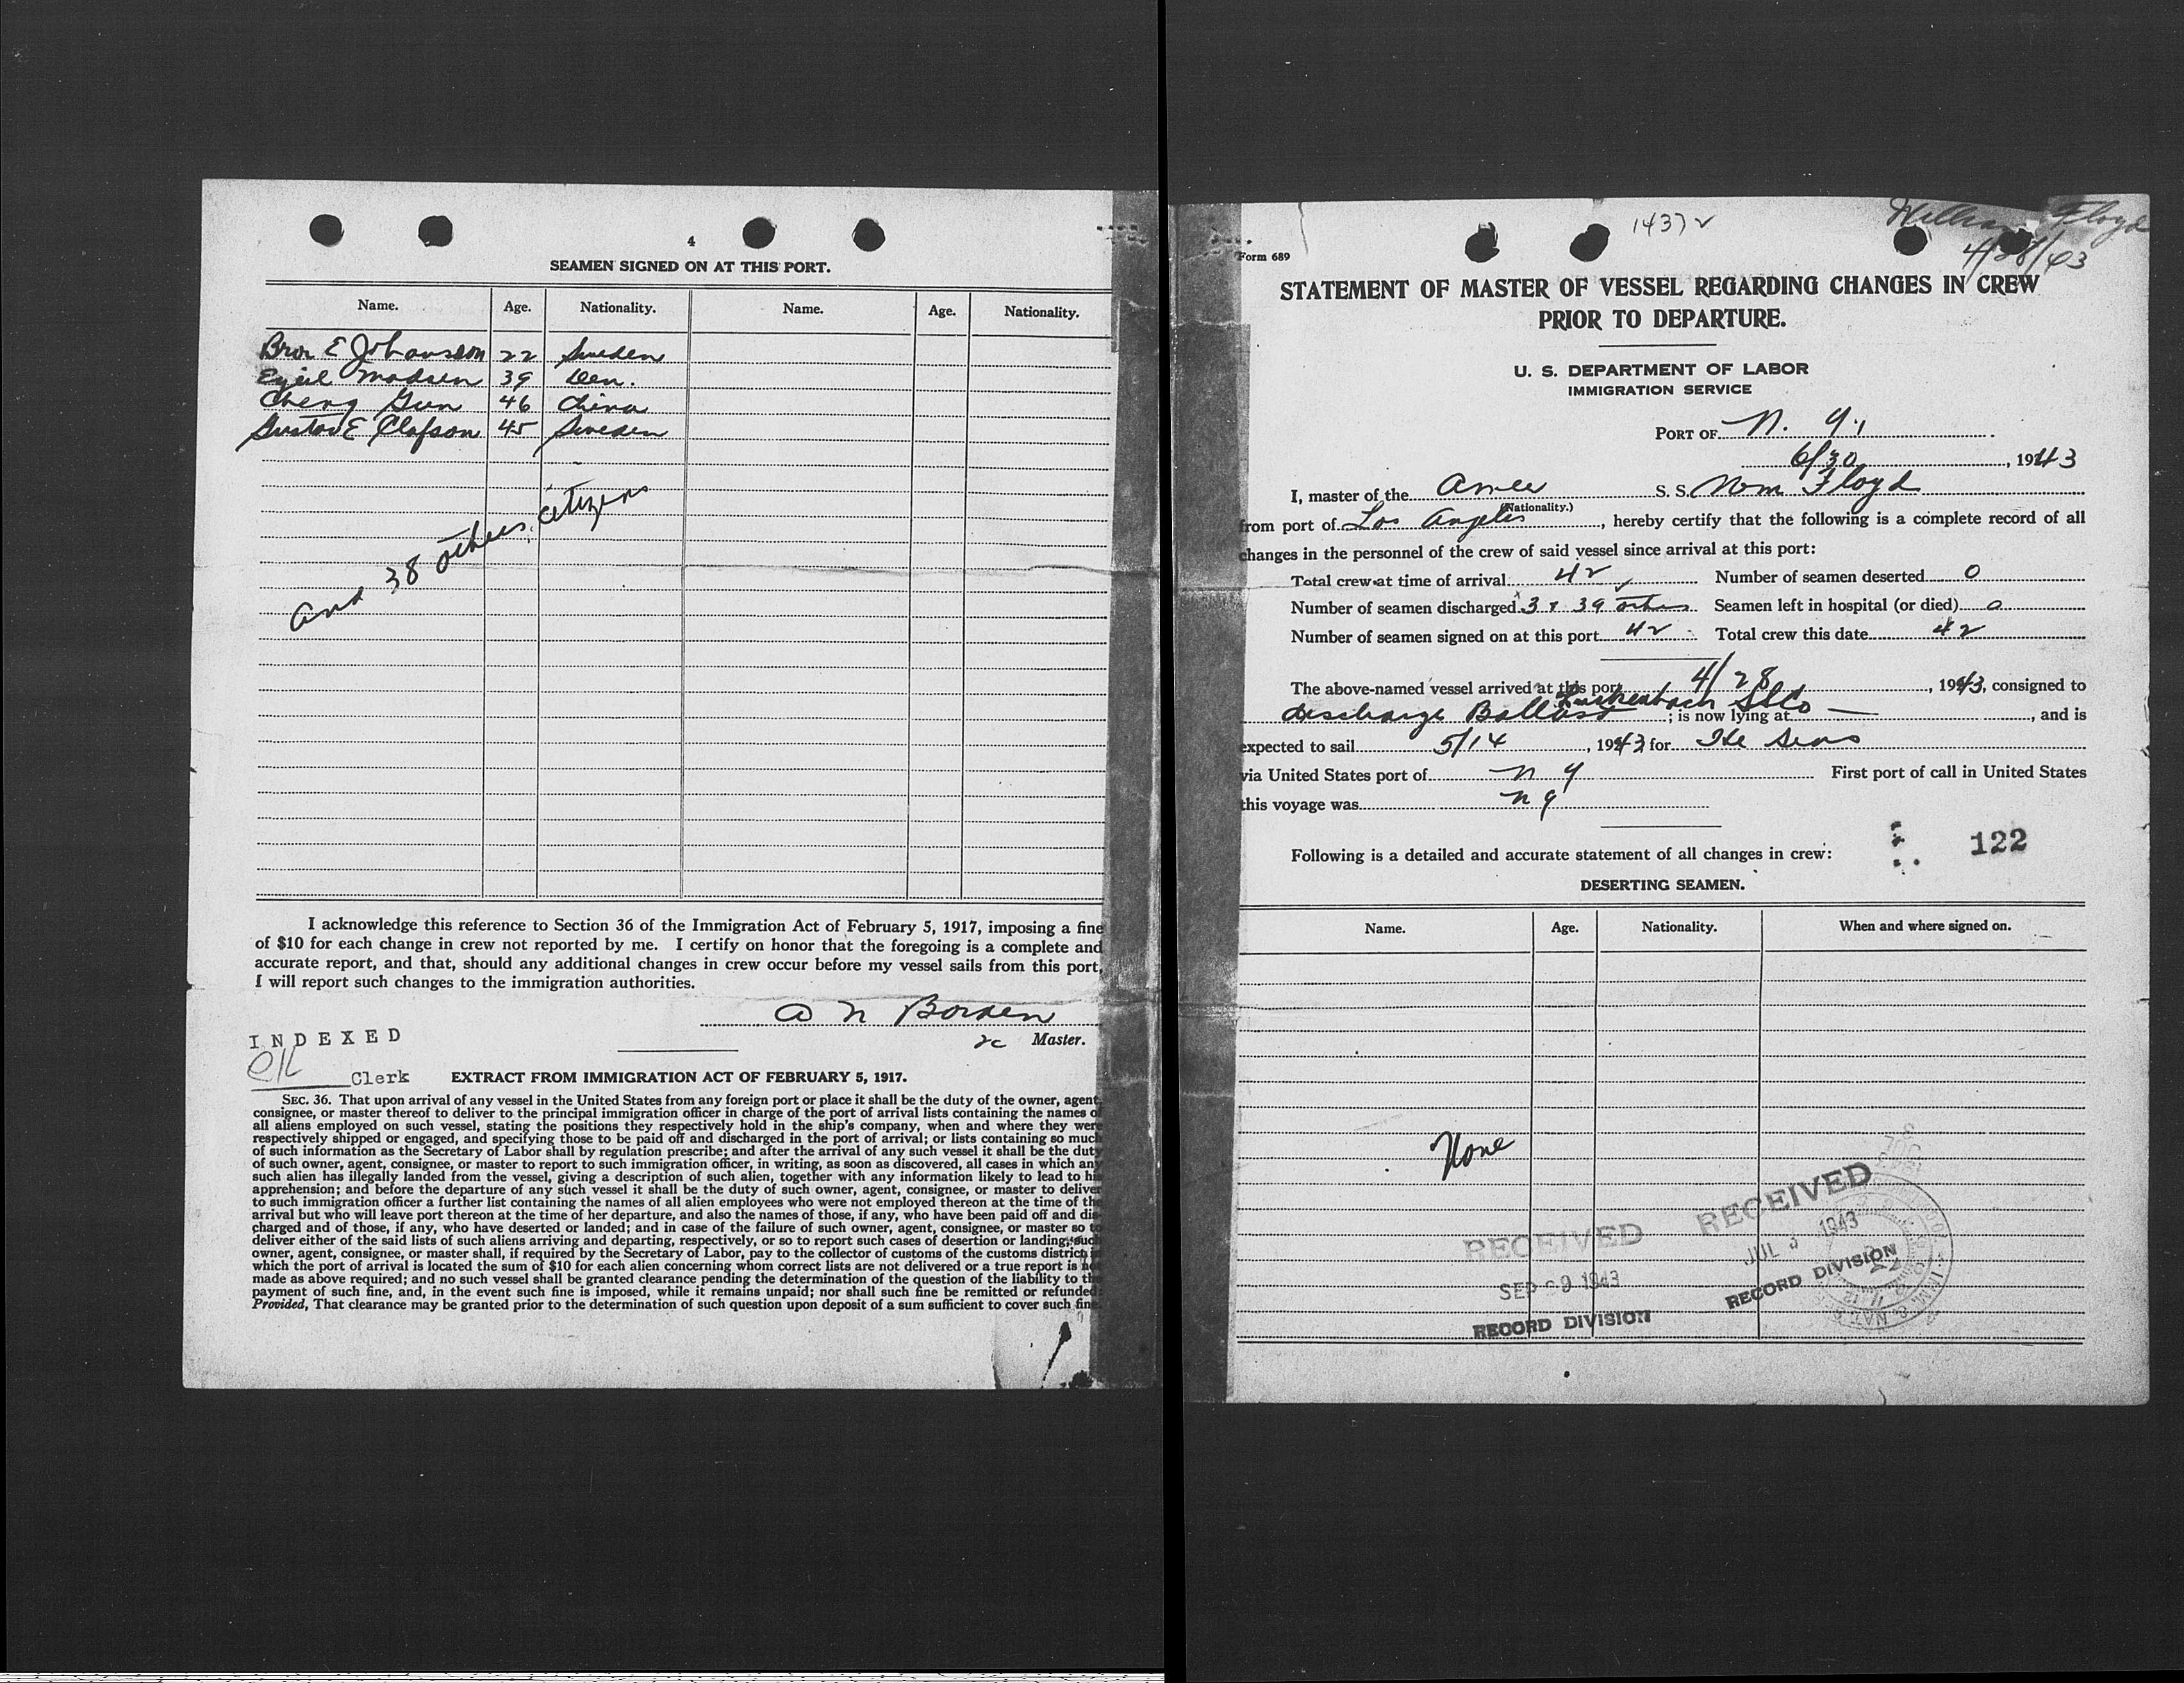 4
SEAMEN SIGNED ON AT THIS PORT.
Name. Age. Nationality. Name. Age. Nationality.
Bror E Johansson 22 Sweden
Egiel Madsen 39 Den.
Cheng Gun 46 China
Gustav E Olafson 45 Sweden
and 38 others citizens
I acknowledge this reference to Section 36 of the Immigration Act of February 5, 1917, imposing a fine
of $10 for each change in crew not reported by me. I certify on honor that the foregoing is a complete and
accurate report, and that, should any additional changes in crew occur before my vessel sails from this port,
I will report such changes to the immigration authorities.
A N Borden
Master.
INDEXED
Clerk
EXTRACT FROM IMMIGRATION ACT OF FEBRUARY 5, 1917.
SEC. 36. That upon arrival of any vessel in the United States from any foreign port or place it shall be the duty of the owner, agent,
consignee, or master thereof to deliver to the principal immigration officer in charge of the port of arrival lists containing the names of
all aliens employed on such vessel, stating the positions they respectively hold in the ship's company, when and where they were
respectively shipped or engaged, and specifying those to be paid off and discharged in the port of arrival; or lists containing so much
of such information as the Secretary of Labor shall by regulation prescribe; and after the arrival of any such vessel it shall be the duty
of such owner, agent, consignee, or master to report to such immigration officer, in writing, as soon as discovered, all cases in which any
such alien has illegally landed from the vessel, giving a description of such alien, together with any information likely to lead to his
apprehension; and before the departure of any such vessel it shall be the duty of such owner, agent, consignee, or master to deliver
to such immigration officer a further list containing the names of all alien employees who were not employed thereon at the time of the
arrival but who will leave port thereon at the time of her departure, and also the names of those, if any, who have been paid off and dis-
charged and of those, if any, who have deserted or landed; and in case of the failure of such owner, agent, consignee, or master so to
deliver either of the said lists of such aliens arriving and departing, respectively, or so to report such cases of desertion or landing, such
owner, agent, consignee, or master shall, if required by the Secretary of Labor, pay to the collector of customs of the customs district in
which the port of arrival is located the sum of $10 for each alien concerning whom correct lists are not delivered or a true report is not
made as above required; and no such vessel shall be granted clearance pending the determination of the question of the liability to the
payment of such fine, and, in the event such fine is imposed, while it remains unpaid; nor shall such fine be remitted or refunded:
Provided, That clearance may be granted prior to the determination of such question upon deposit of a sum sufficient to cover such fine.
1437
William Floyd
4/28/43
Form 689
STATEMENT OF MASTER OF VESSEL REGARDING CHANGES IN CREW
PRIOR TO DEPARTURE.
U. S. DEPARTMENT OF LABOR
IMMIGRATION SERVICE
PORT OF N. Y.
6/30, 1943
I, master of the Amer S. S. Wm Floyd
(Nationality.)
from port of Los Angeles, hereby certify that the following is a complete record of all
changes in the personnel of the crew of said vessel since arrival at this port:
Total crew at time of arrival 42 Number of seamen deserted 0
Number of seamen discharged 3 & 39 others Seamen left in hospital (or died) 0
Number of seamen signed on at this port 42 Total crew this date 42
The above-named vessel arrived at this port 4/28, 1943, consigned to
Luckenbach SSCo
discharge Ballast; is now lying at —, and is
expected to sail 5/14, 1943 for The Seas
via United States port of N Y First port of call in United States
this voyage was N Y
Following is a detailed and accurate statement of all changes in crew:
122
DESERTING SEAMEN.
Name. Age. Nationality. When and where signed on.
None
RECEIVED
JUL 1943
RECORD DIVISION
RECEIVED
SEP 29 1943
RECORD DIVISION